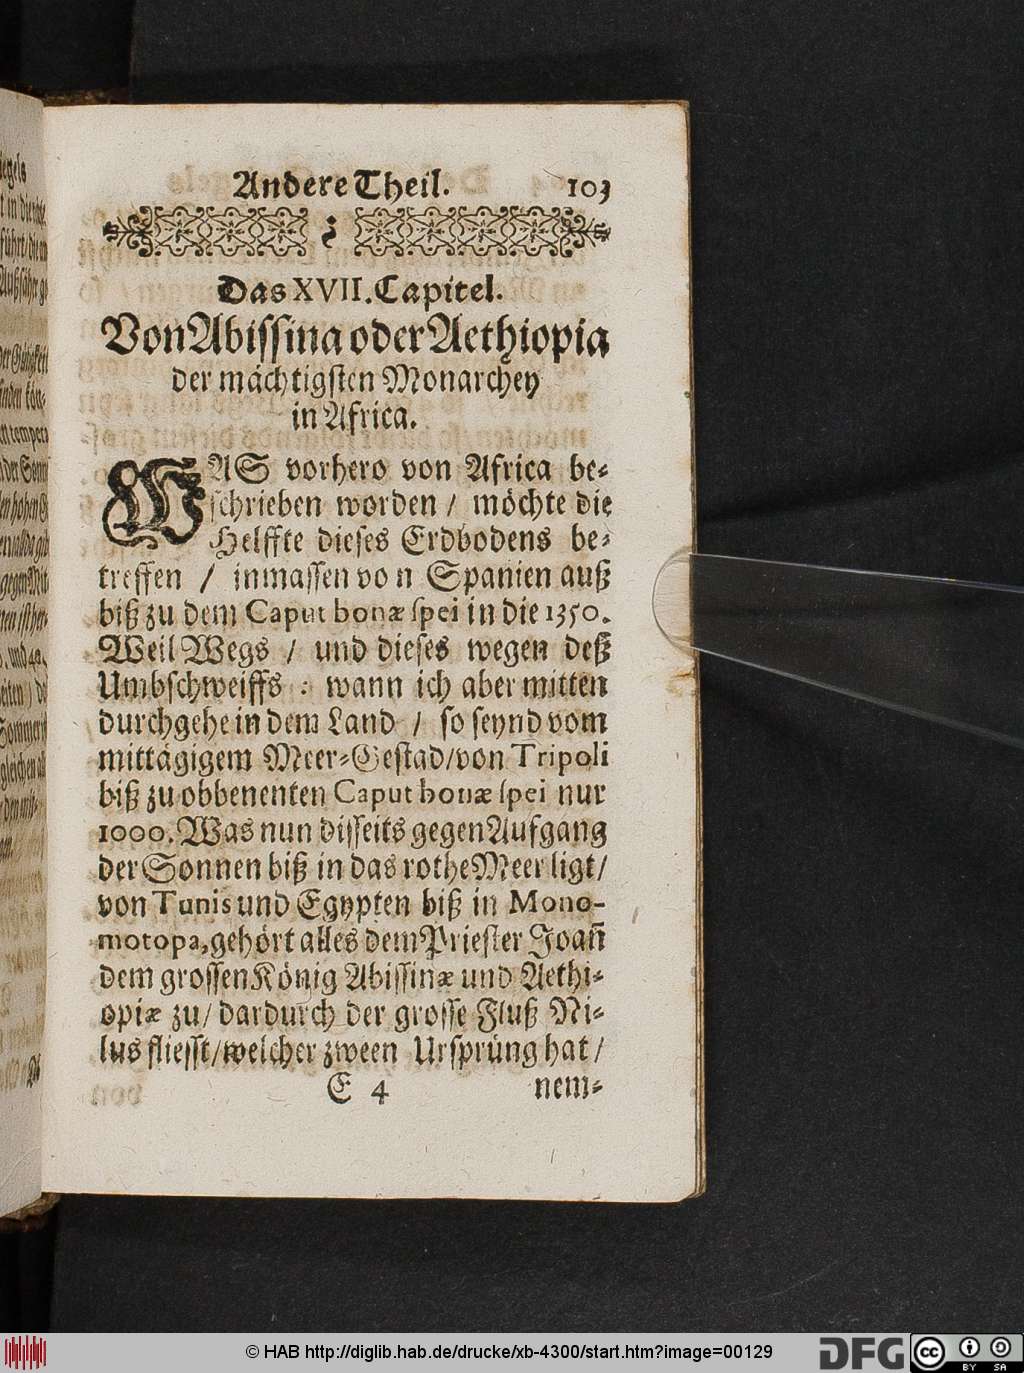 Andere Theil. 103
Das XVII. Capitel.
Von Abissina oder Aethiopia
der mächtigsten Monarchey
in Africa.
WAS vorhero von Africa be-
schrieben worden / möchte die
Helffte dieses Erdbodens be-
treffen / inmassen von Spanien auß
biß zu dem Caput bonæ spei in die 1350.
Weil Wegs / und dieses wegen deß
Umbschweiffs : wann ich aber mitten
durchgehe in dem Land / so seynd vom
mittägigem Meer-Gestad/von Tripoli
biß zu obbenenten Caput bonæ spei nur
1000. Was nun disseits gegen Aufgang
der Sonnen biß in das rothe Meer ligt/
von Tunis und Egypten biß in Mono-
motopa, gehört alles dem Priester Joañ
dem grossen König Abissinæ und Aethi-
opiæ zu/ dardurch der grosse Fluß Ni-
lus fliesst/welcher zween Ursprüng hat /
E 4 nem-
© HAB http://diglib.hab.de/drucke/xb-4300/start.htm?image=00129
DFG
cc BY SA